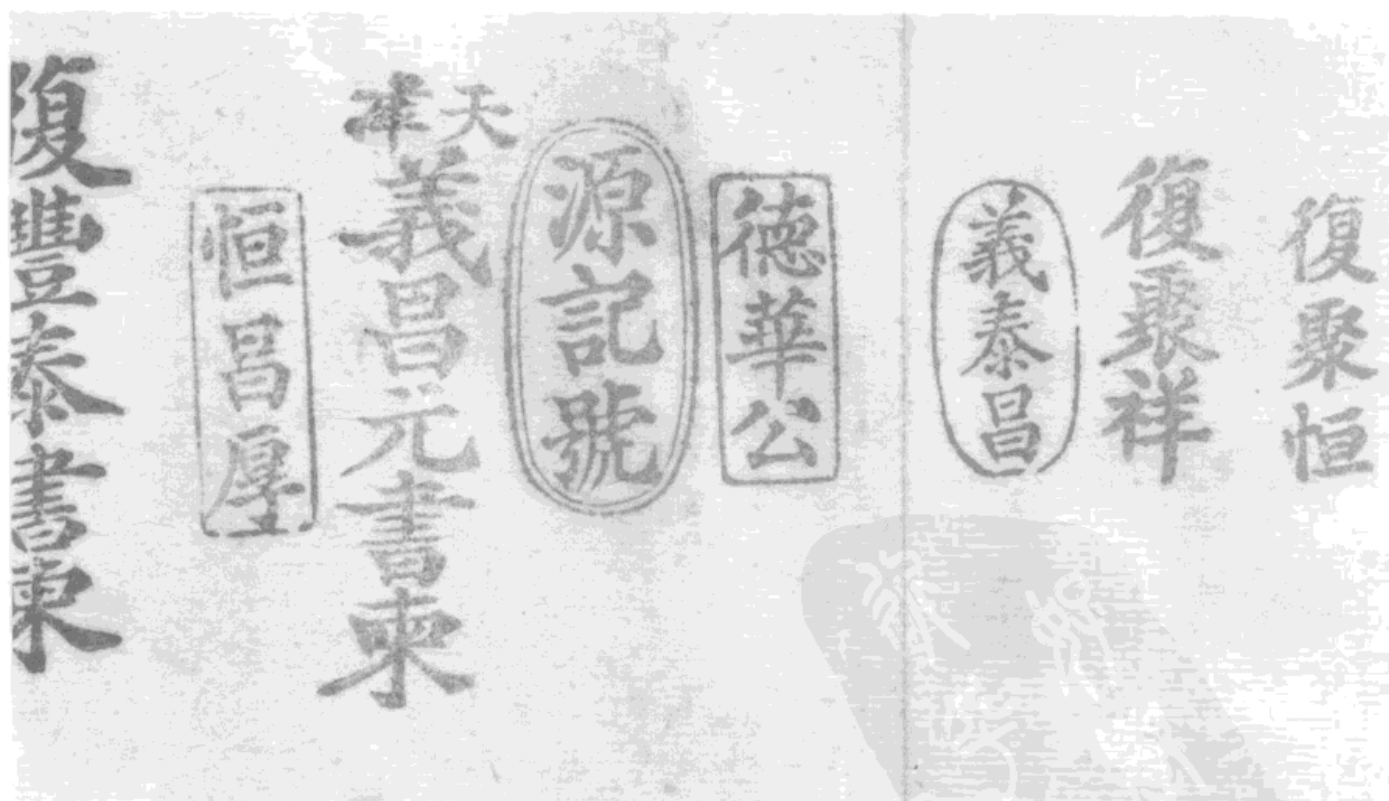 復聚恒
復聚祥
義泰昌
德華公
源記號
天津
義昌元書柬
恒昌厚
復豐泰書柬